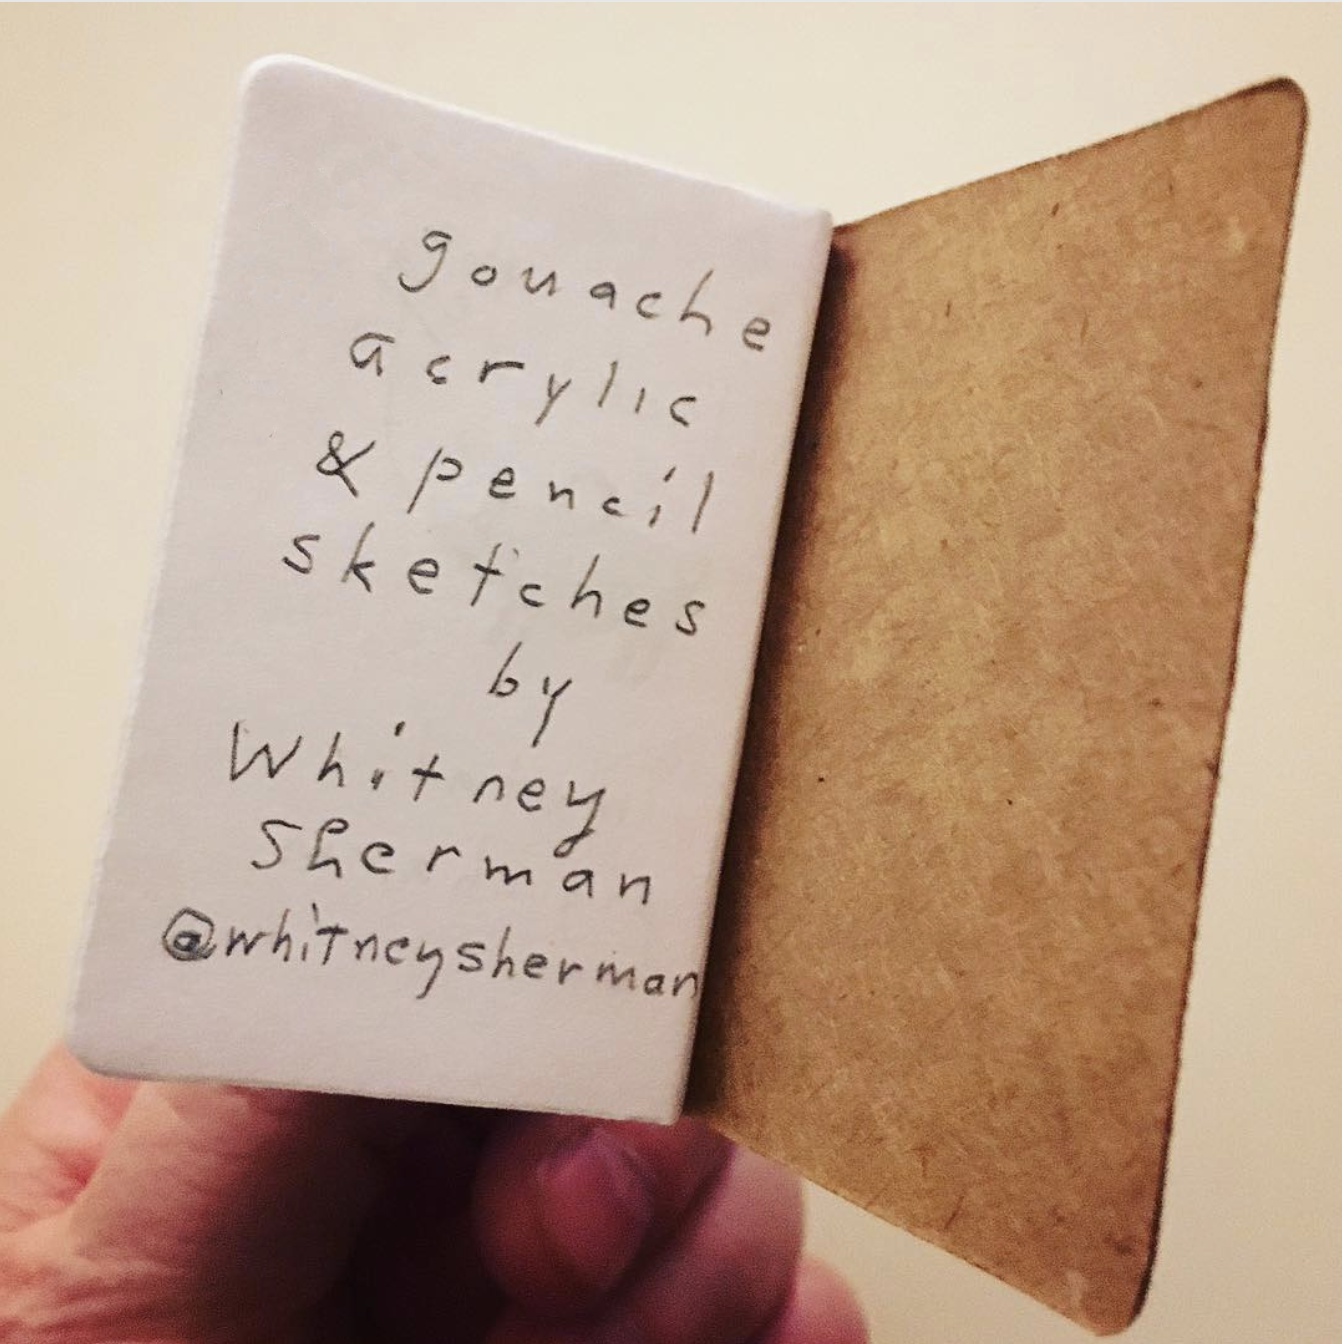 gouache
acrylic
& pencil
sketches
by
Whitney
Sherman
@whitneysherman